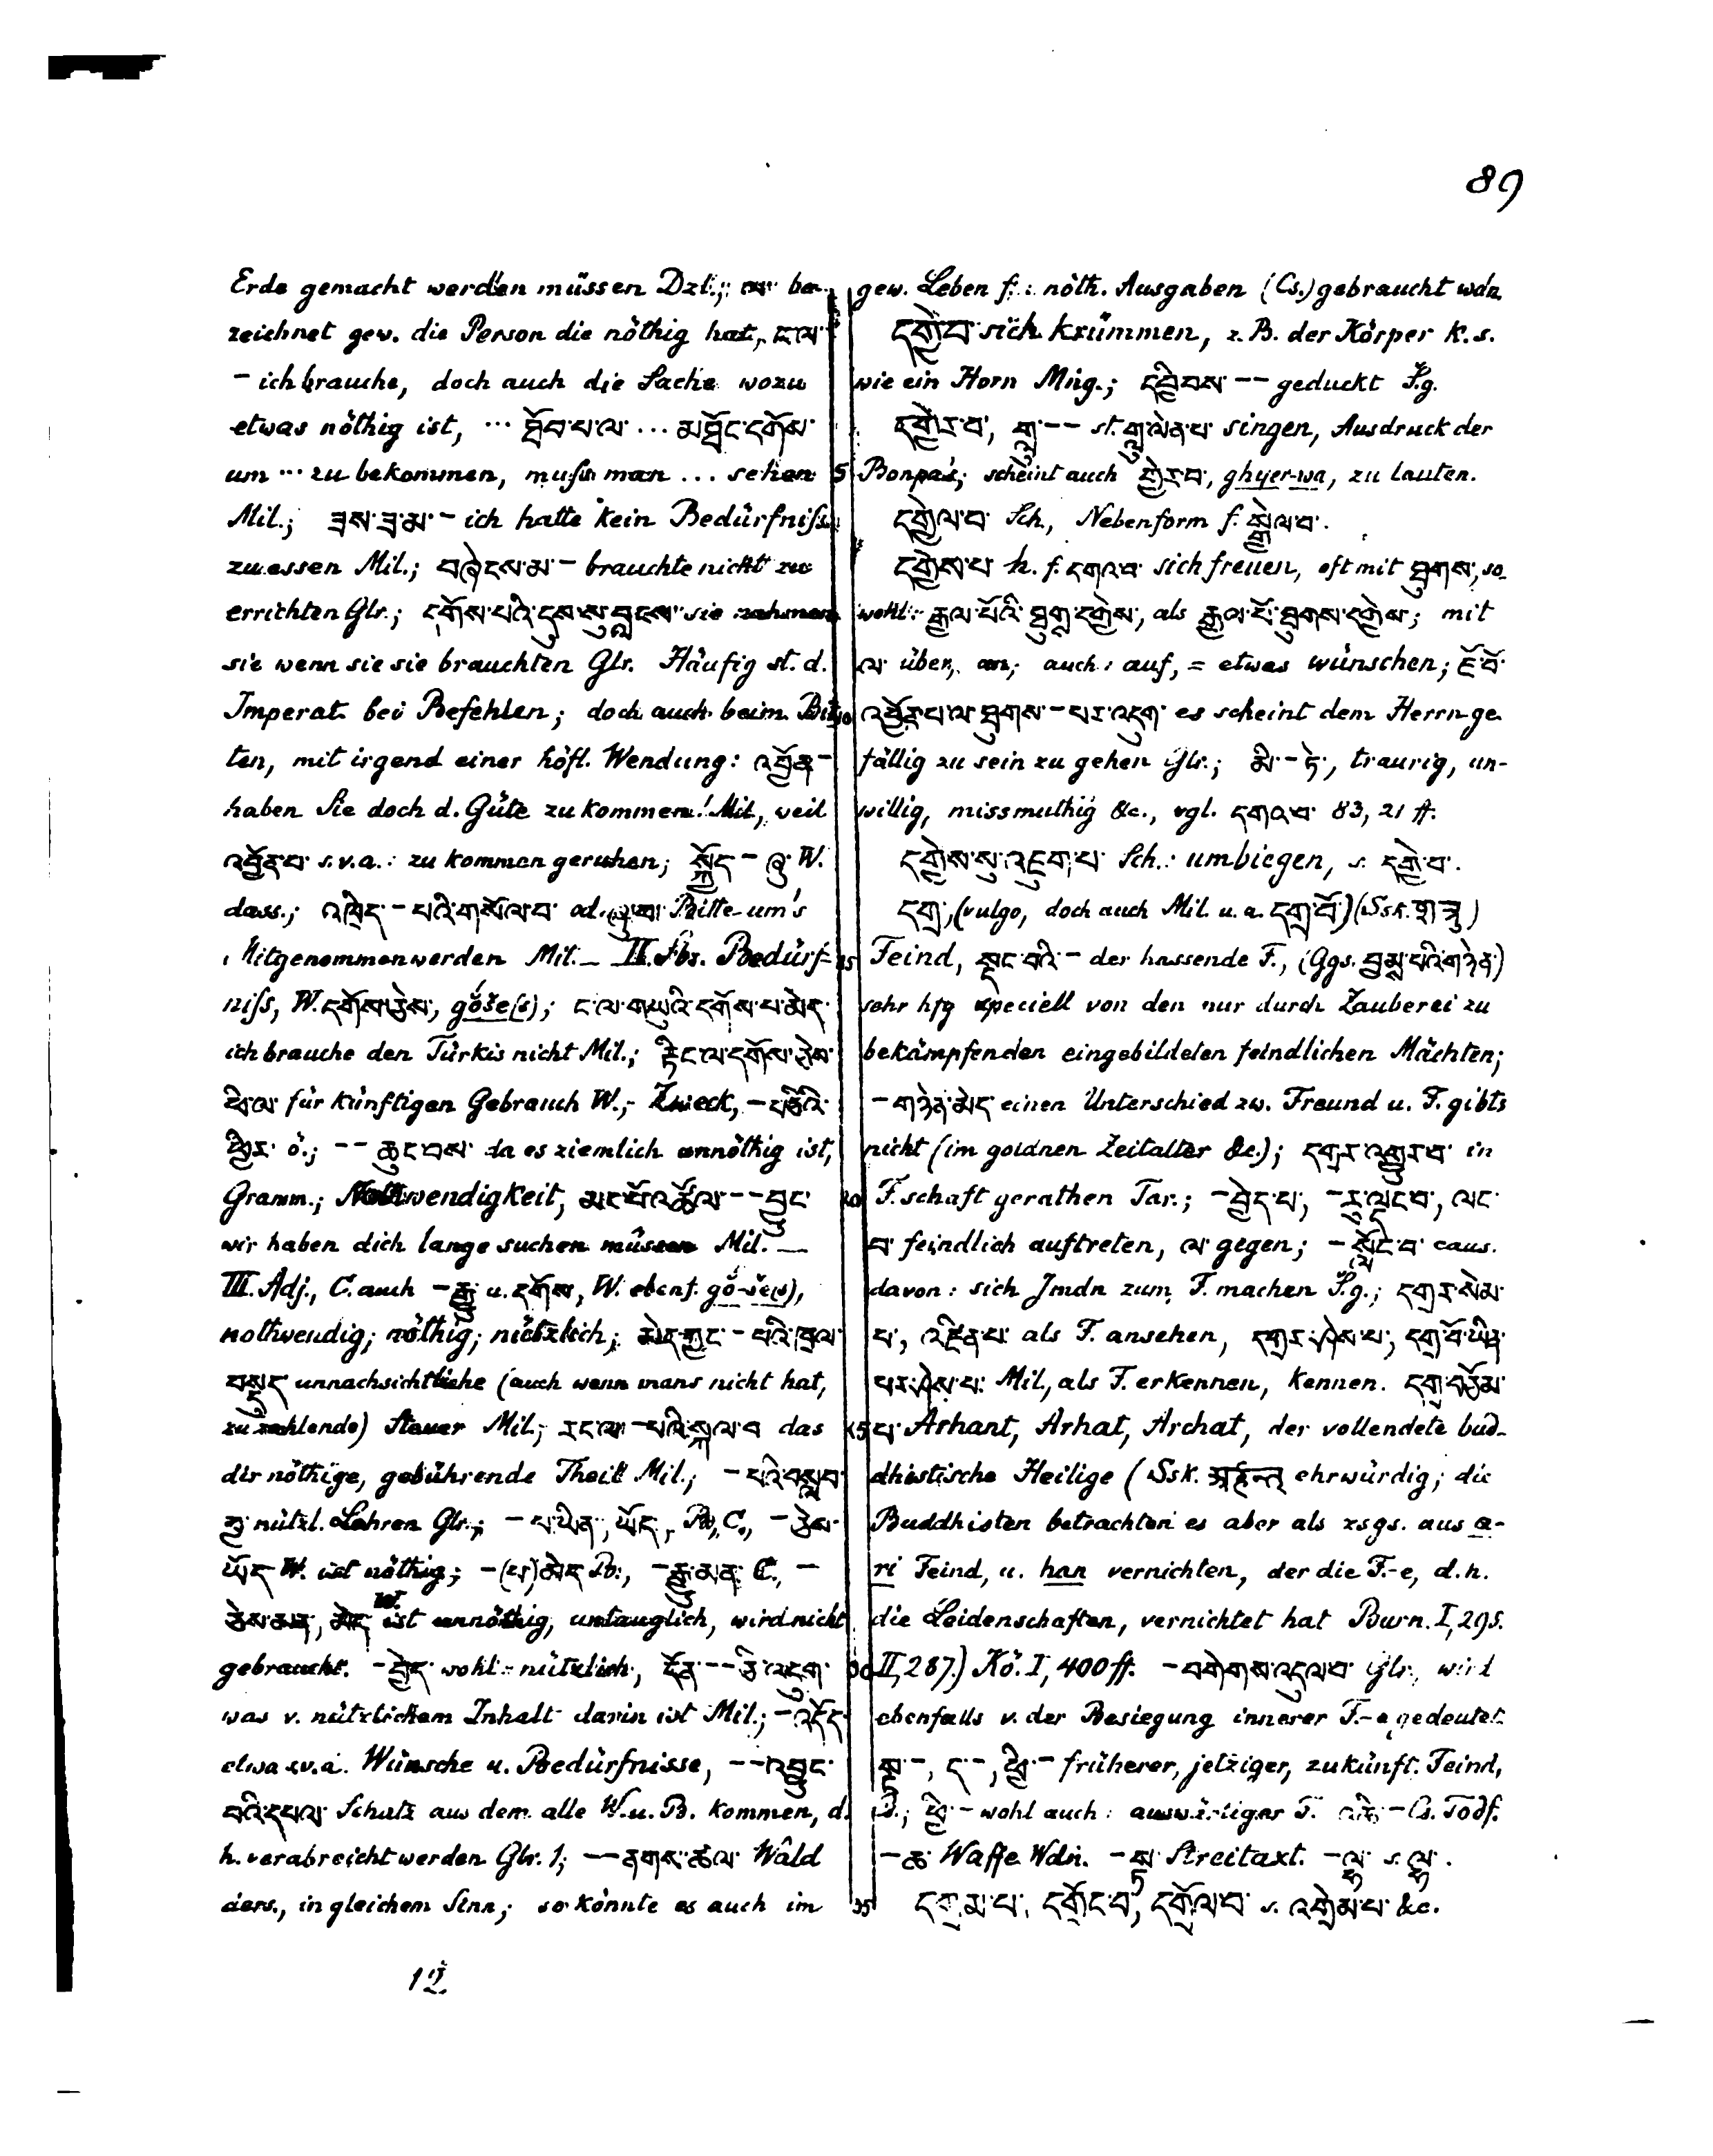 89
Erde gemacht werden müssen Dzl.; be-
zeichnet gew. die Person die nöthig hat, ང་ལ་
– ich brauche, doch auch die Sache wozu
etwas nöthig ist, ... ཐོབ་པ་ལ་ ... མཐོང་དགོས་
um ... zu bekommen, muſs man ... sehen
Mil.; ཟས་ཟ་མ་ – ich hatte kein Bedürfniſs
zu essen Mil.; བཞེངས་མ་ – brauchte nicht zu
errichten Glr.; དགོས་པའི་དུས་སུ་བླངས་ sie nahmen
sie wenn sie sie brauchten Glr. Häufig st. d.
Imperat. bei Befehlen; doch auch beim Bit-
ten, mit irgend einer höfl. Wendung: འབྱོན –
haben Sie doch d. Güte zu kommen! Mil., weil
འབྱོན་པ་ s.v.a.: zu kommen geruhen; སྐྱོད – ཞུ་ W.
dass.; འཁྲིད་ – པའི་གསོལ་བ་ od. ཞུ་བ་ Bitte um's
Mitgenommenwerden Mil. — II. Sbs. Bedürf-
niſs, W. དགོས་ཅེས་, gṓše(s); ང་ལ་གཡུའི་དགོས་པ་མེད་
ich brauche den Türkis nicht Mil.; རྟིང་ལ་དགོས་ཅེས་
ཕི་ལ་ für künftigen Gebrauch W.; Zweck, – པའི་
ཕྱིར་ ö.; –– ཆུང་བས་ da es ziemlich unnöthig ist,
Gramm.; Nothwendigkeit, མང་པོ་འཚོལ་ –– བྱུང་
wir haben dich lange suchen müssen Mil. —
III. Adj., C. auch – རྒྱུ་ u. དགོས, W. ebens. gṓ-še(s),
nothwendig; nöthig; nützlich; མེད་ཀྱང་ – པའི་ཁྲལ་
བསྡུད unnachsichtliche (auch wenn mans nicht hat,
zu zahlende) Steuer Mil.; རང་ལ་ – པའི་སྐལ་བ das
dir nöthige, gebührende Theil Mil.; – པའི་བསླབ་
བྱ་ nützl. Lehren Glr.; – པ་ཡིན་, ཡོད་, B., C., – ཅེས་
ཡོད W. ist nöthig; – (པ་)མེད B., – རྒྱུ་མན་ C., –
ཅེས་མན་, མེད W. ist unnöthig, untauglich, wird nicht
gebraucht. – བྱེད་ wohl: nützlich, དོན་ –– ཅི་འདུག་
was v. nützlichem Inhalt darin ist Mil.; – འདོད་
etwa s.v.a. Wünsche u. Bedürfnisse, –– འབྱུང་
བའི་དཔལ་ Schatz aus dem alle W. u. B. kommen, d.
h. verabreicht werden Glr. 1; –– ནགས་ཚལ་ Wald
ders., in gleichem Sinn; so könnte es auch im
12
gew. Leben f.: nöth. Ausgaben (Cs.) gebraucht wdn.
དགྱེ་བ་ sich krümmen, z. B. der Körper k. s.
wie ein Horn Mṅg.; དགྱེ་བས་ –– geduckt S̆.g.
དགྱེར་བ་, གླུ་ –– st. གླུ་ལེན་པ་ singen, Ausdruck der
Bonpa's; scheint auch གྱེར་བ་, ghyer-wa, zu lauten.
དགྱེལ་བ་ Sch., Nebenform f. སྒྱེལ་བ་.
དགྱེས་པ་ h. f. དགའ་བ་ sich freuen, oft mit ཐུགས་, so-
wohl: རྒྱལ་པོའི་ཐུགས་དགྱེས་, als རྒྱལ་པོ་ཐུགས་དགྱེས་; mit
ལ་ über, an; auch: auf, = etwas wünschen; ཇོ་བོ་
འབྱོན་པ་ལ་ཐུགས་ – པར་འདུག་ es scheint dem Herrn ge-
fällig zu sein zu gehen Glr.; མི་ – ཏེ་, traurig, un-
willig, missmuthig &c., vgl. དགའ་བ་ 83, 21 ff.
དགྱེས་སུ་འཇུག་པ་ Sch.: umbiegen, s. དགྱེ་བ་.
དགྲ་, (vulgo, doch auch Mil. u. a. དགྲ་བོ་) (Ssk. शत्रु)
Feind, སྡང་བའི་ – der hassende F., (Ggs. བྱམས་པའི་གཉེན་)
sehr hfg speciell von den nur durch Zauberei zu
bekämpfenden eingebildeten feindlichen Mächten;
– གཉེན་མེད་ einen Unterschied zw. Freund u. F. gibts
nicht (im goldnen Zeitalter &c.); དགྲར་འགྱུར་བ་ in
F. schaft gerathen Tar.; – བྱེད་པ་, – རུ་ལྡང་བ་, ལང་
བ་ feindlich auftreten, ལ་ gegen; – སློང་བ་ caus.
davon: sich Jmdn zum F. machen S̆.g.; དགྲར་སེམ་
པ་, འཛིན་པ་ als F. ansehen, དགྲར་ཤེས་པ་, དགྲ་བོ་ཡིན་
པར་ཤེས་པ་ Mil., als F. erkennen, kennen. དགྲ་བཅོམ་
པ་ Arhant, Arhat, Archat, der vollendete bud-
dhistische Heilige (Ssk. अर्हन्त् ehrwürdig; die
Buddhisten betrachten es aber als zsgs. aus a-
ri Feind, u. han vernichten, der die F.-e, d. h.
die Leidenschaften, vernichtet hat Burn. I, 295.
II, 287.) Kö. I, 400 ff. – བགེགས་འདུལ་བ་ Glr., wird
ebenfalls v. der Besiegung innerer F.-e gedeutet.
སྔ་ –, ད་ –, ཕྱི་ – früherer, jetziger, zukünft. Feind,
ཕྱི་ – wohl auch: auswärtiger F. – Cs. Todf.
– ཆ་ Waffe Wdn. – སྟ་ Streitaxt. – ལྷ་ s. ལྷ་.
དགྲམ་པ་, དགྲོང་བ་, དགྲོལ་བ་ s. འགྲེམ་པ་ &c.